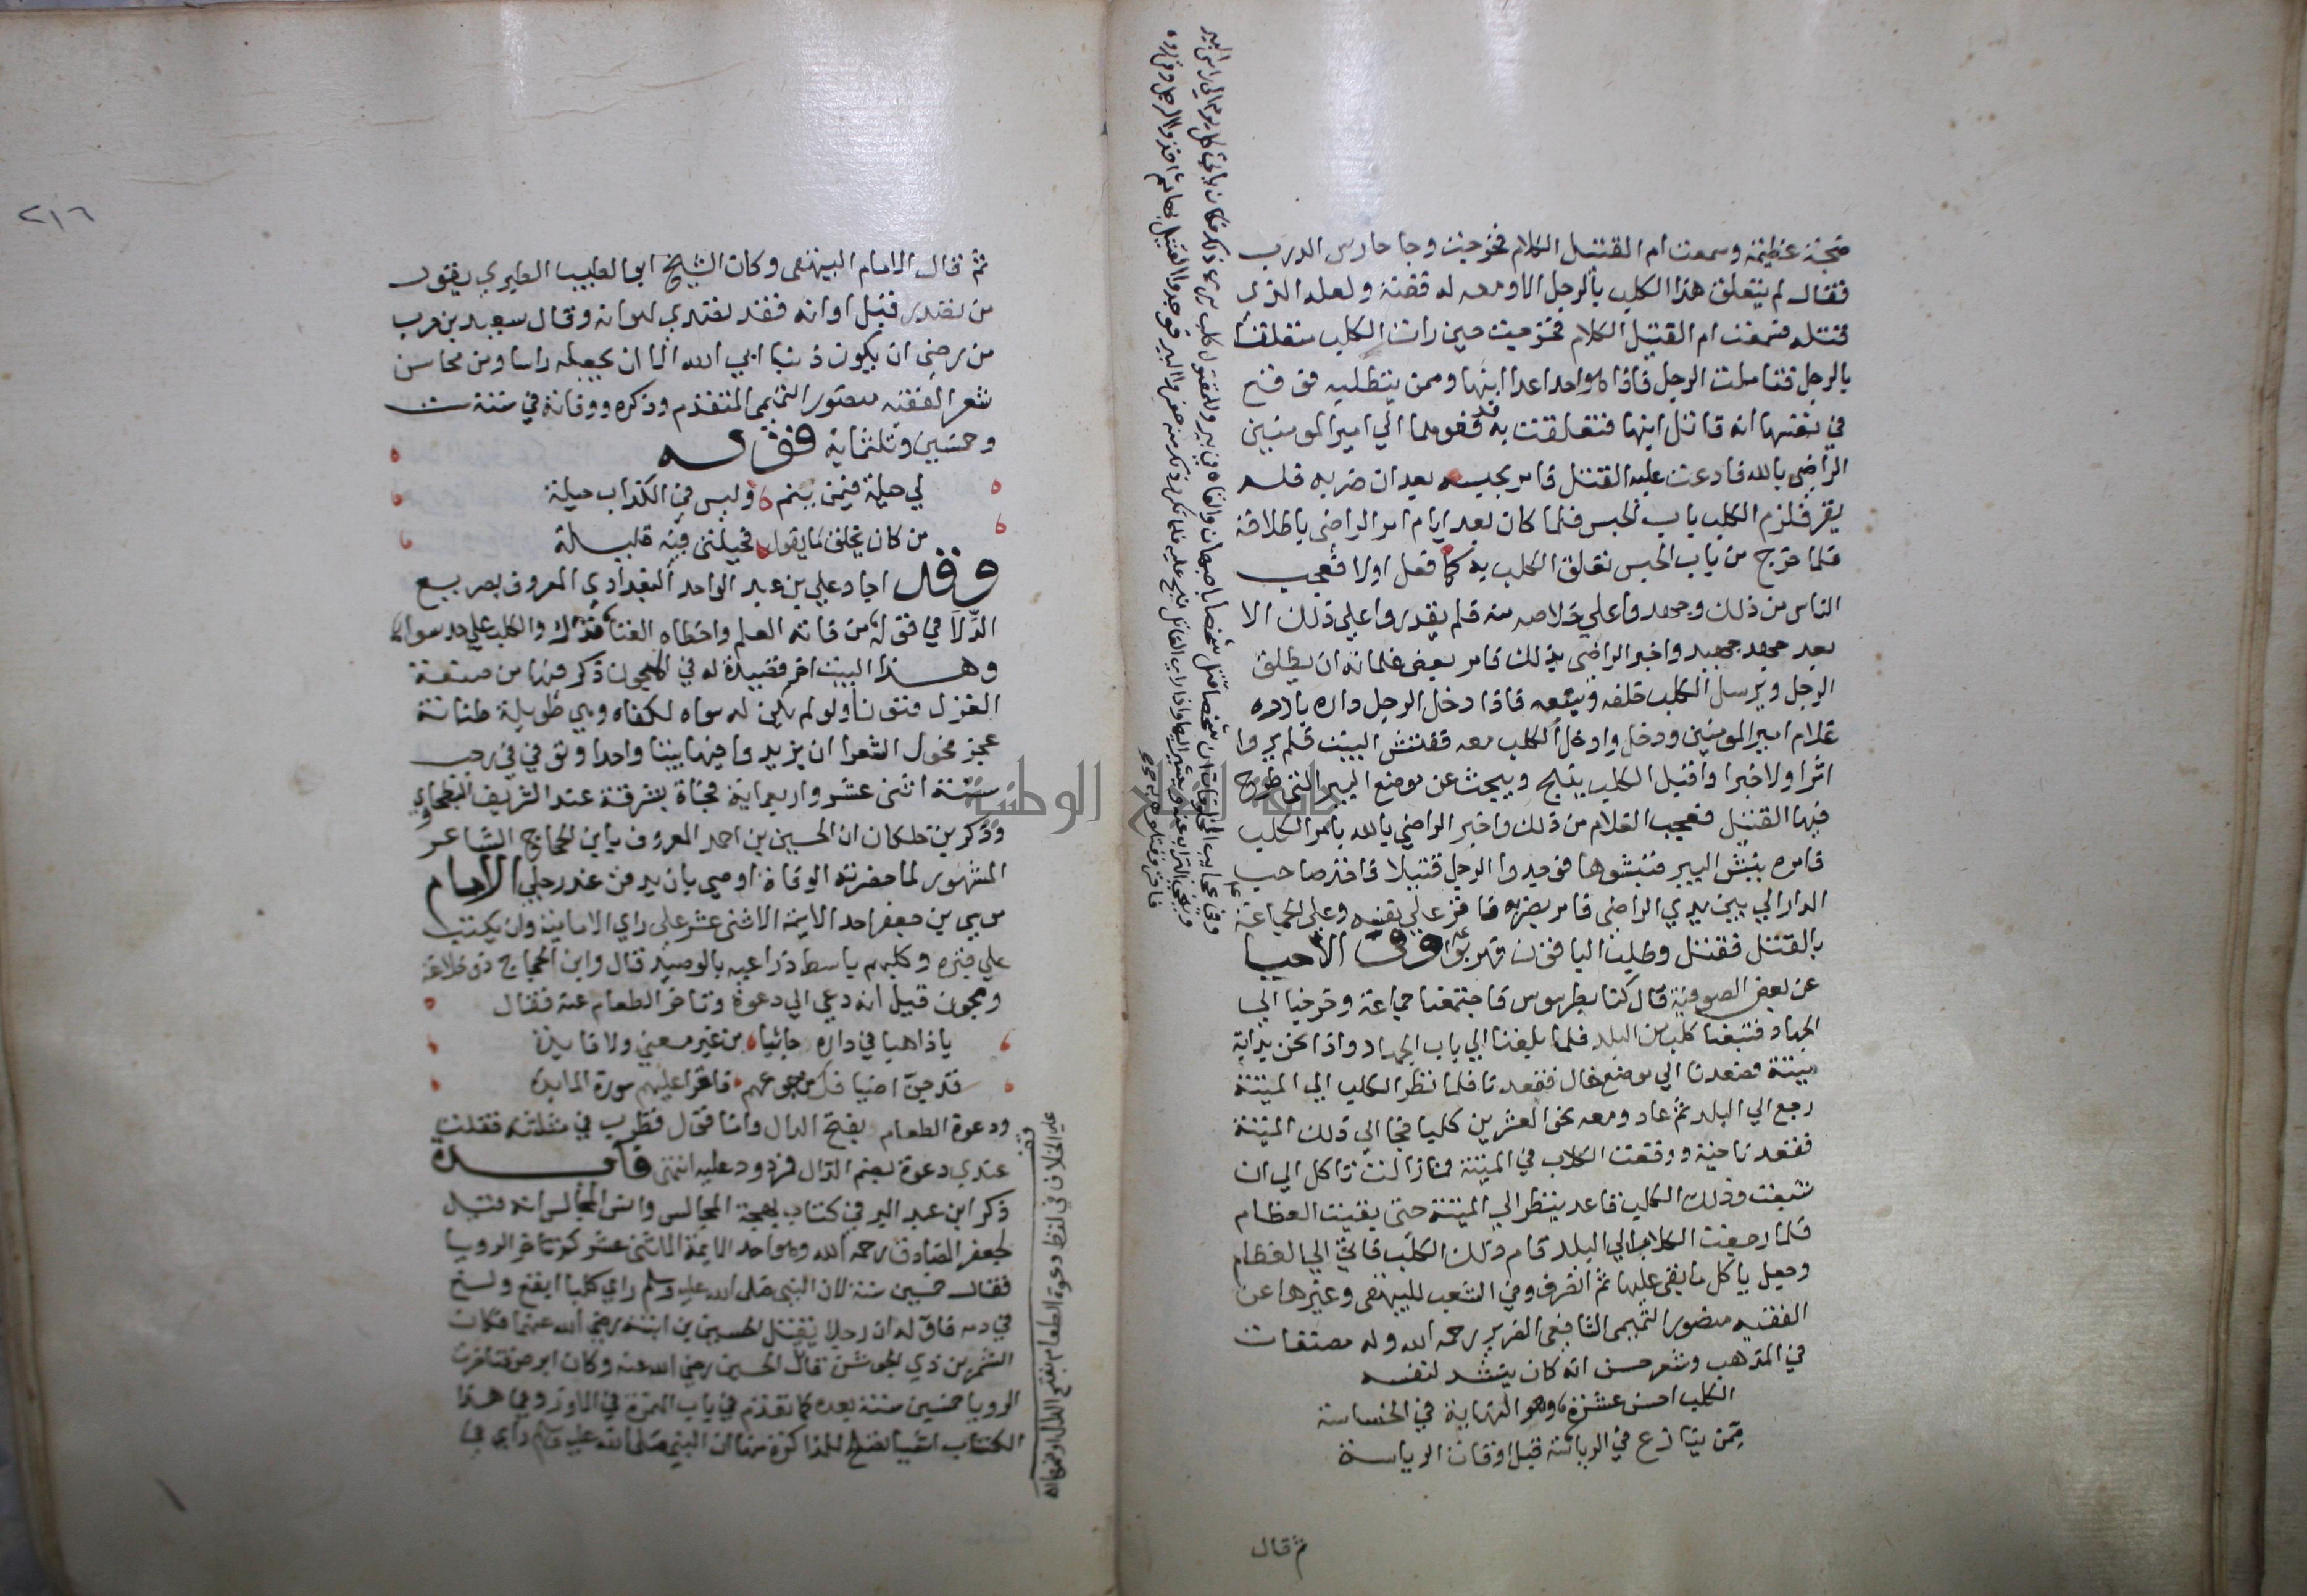 ضجة عظيمة وسمعت ام القتيل الكلام فخرجت وجا حارس الدرب
فقال لم يتعلق هذا الكلب بالرجل الا ومعه له قصة ولعله الذى
قتله فسمعت ام القتيل الكلام فخرجت حين رات الكلب متعلقا
بالرجل فتاملت الرجل فاذا هو احد اعدا ابنها وممن يتطلبه فوقع
في نفسها انه قاتل ابنها فتعلقت به فرفعوهما الي امير المومنين
الراضي بالله فادعت عليه القتل فامر بحبسه بعد ان ضربه فلم
يقر فلزم الكلب باب الحبس فلما كان بعد ايام امر الراضي باطلاقه
فلما خرج من باب الحبس تعلق الكلب به كما فعل اولا فعجب
الناس من ذلك وجهدوا علي خلاصه منه فلم يقدروا علي ذلك الا
بعد جهد جهيد واخبر الراضي بذلك فامر بعض غلمانه ان يطلق
الرجل ويرسل الكلب خلفه ويتبعه فاذا دخل الرجل داره بادره
غلام امير المومنين ودخل وادخل الكلب معه ففتش البيت فلم يروا
اثرا ولا خبرا واقبل الكلب ينبح ويبحث عن موضع البير التي طرح
فيها القتيل فعجب الغلام من ذلك واخبر الراضي بالله بامر الكلب
فامره بنبش البير فنبشوها فوجدوا الرجل قتيلا فاخذ صاحب
الدار الي بين يدي الراضي فامر بضربه فاقر علي نفسه وعلي الجماعة
بالقتل فقتل وطلب الباقون فهربوا وفي الاحيا
عن بعض الصوفية قال كنا بطرسوس فاجتمعنا جماعة وخرجنا الي
الجهاد فتبعنا كلب من البلد فلما بلغنا الي باب الجهاد واذا نحن بدابة
ميتة فصعدنا الي موضع خال فقعدنا فلما نظر الكلب الي الميتة
رجع الي البلد ثم عاد ومعه نحو العشرين كلبا فجا الي تلك الميتة
فقعد ناحية ووقعت الكلاب في الميتة فما زالت تاكل الي ان
شبعت وذلك الكلب قاعد ينظر الي الميتة حتي بقيت العظام
فلما رجعت الكلاب الي البلد قام ذلك الكلب فاتي الي العظام
وجعل ياكل ما بقي عليها ثم انصرف وفي الشعب للبيهقي وغيرها عن
الفقيه منصور التميمي الشافعي الضرير رحمه الله وله مصنفات
في المذهب وشعر حسن انه كان ينشد لنفسه
الكلب احسن عشرة وهو النهاية في الخساسة
ممن ينازع في الرياسة قبل اوقات الرياسة
ثم قال
وفي عجايب المخلوقات ان شخصا قتل شخصا باصبهان والقاه في بير وللمقتول كلب يري ذلك فكان ياتي كل يوم الي راس البير
وينحي التراب عنه ويشير اليها واذا راي القاتل نبح عليه فلما تكرر ذلك منه حفروا البير فوجدوا القتيل بها ثم اخذوا الرجل وقرروه
فاقر فقتلوه به
٢١٦
ثم قال الامام البيهقي وكان الشيخ ابو الطيب الطبري يقول
من تصدر قبل اوانه فقد تصدي لهوانه وقال سعيد بن حرب
من رضي ان يكون ذنبا ابي الله الا ان يجعله راسا ومن محاسن
شعر الفقيه منصور التميمي المتقدم وذكره ووفاته في سنة ست
وخمسين وثلثماية قوله
لي حيلة فيمن ينم وليس في الكذاب حيلة
من كان يخلق ما يقول فحيلتي فيه قليلة
وقد اجاد علي بن عبد الواحد البغدادي المعروف بصريع
الدلا في قوله من فاته العلم واخطاه الغنا فذاك والكلب علي حد سوا
وهذا البيت اخر قصيدة له في المجون ذكر فيها من صنعة
الغزل فنونا ولو لم يكن له سواه لكفاه وهي طويلة طنانة
عجز فحول الشعرا ان يزيدوا فيها بيتا واحدا وتوفي في رجب
سنة اثني عشر واربعماية فجاة بشرقة عند الشريف البطحاوي
وذكر بن خلكان ان الحسين بن احمد المعروف بابن الحجاج الشاعر
المشهور لما حضرته الوفاة اوصي بان يدفن عند رجلي الامام
موسي بن جعفر احد الايمة الاثني عشر علي راي الامامية وان يكتب
علي قبره وكلبهم باسط ذراعيه بالوصيد قال وابن الحجاج ذو خلاعة
ومجون قيل انه دعي الي دعوة وتاخر الطعام عنه فقال
يا ذاهبا في داره جائيا من غير معني ولا فايدة
قد جن اضيافك من جوعهم فاقرا عليهم سورة المايدة
ودعوة الطعام بفتح الدال واما قول قطرب في مثلثه فقلت
عندي دعوة بضم الدال فمردود عليه انتهي فايدة
ذكر ابن عبد البر في كتاب بهجة المجالس وانس المجالس انه قيل
لجعفر الصادق رحمه الله وهو احد الايمة الاثني عشر كم تتاخر الرويا
فقال خمسين سنة لان النبي صلي الله عليه وسلم راي كلبا ابقع ولغ
في دمه فاوله ان رجلا يقتل الحسين بن ابنته رضي الله عنها فكان
الشمر بن ذي الجوشن قاتل الحسين رضي الله عنه وكان ابرص فتاخرت
الرويا خمسين سنة بعده كما تقدم في باب الهمزة في الاوز وفي هذا
الكتاب اشيا تصلح للمذاكرة منها ان النبي صلي الله عليه وسلم راي في
قف
علي الخلاف في لفظ دعوة الطعام بفتح الدال او ضمها